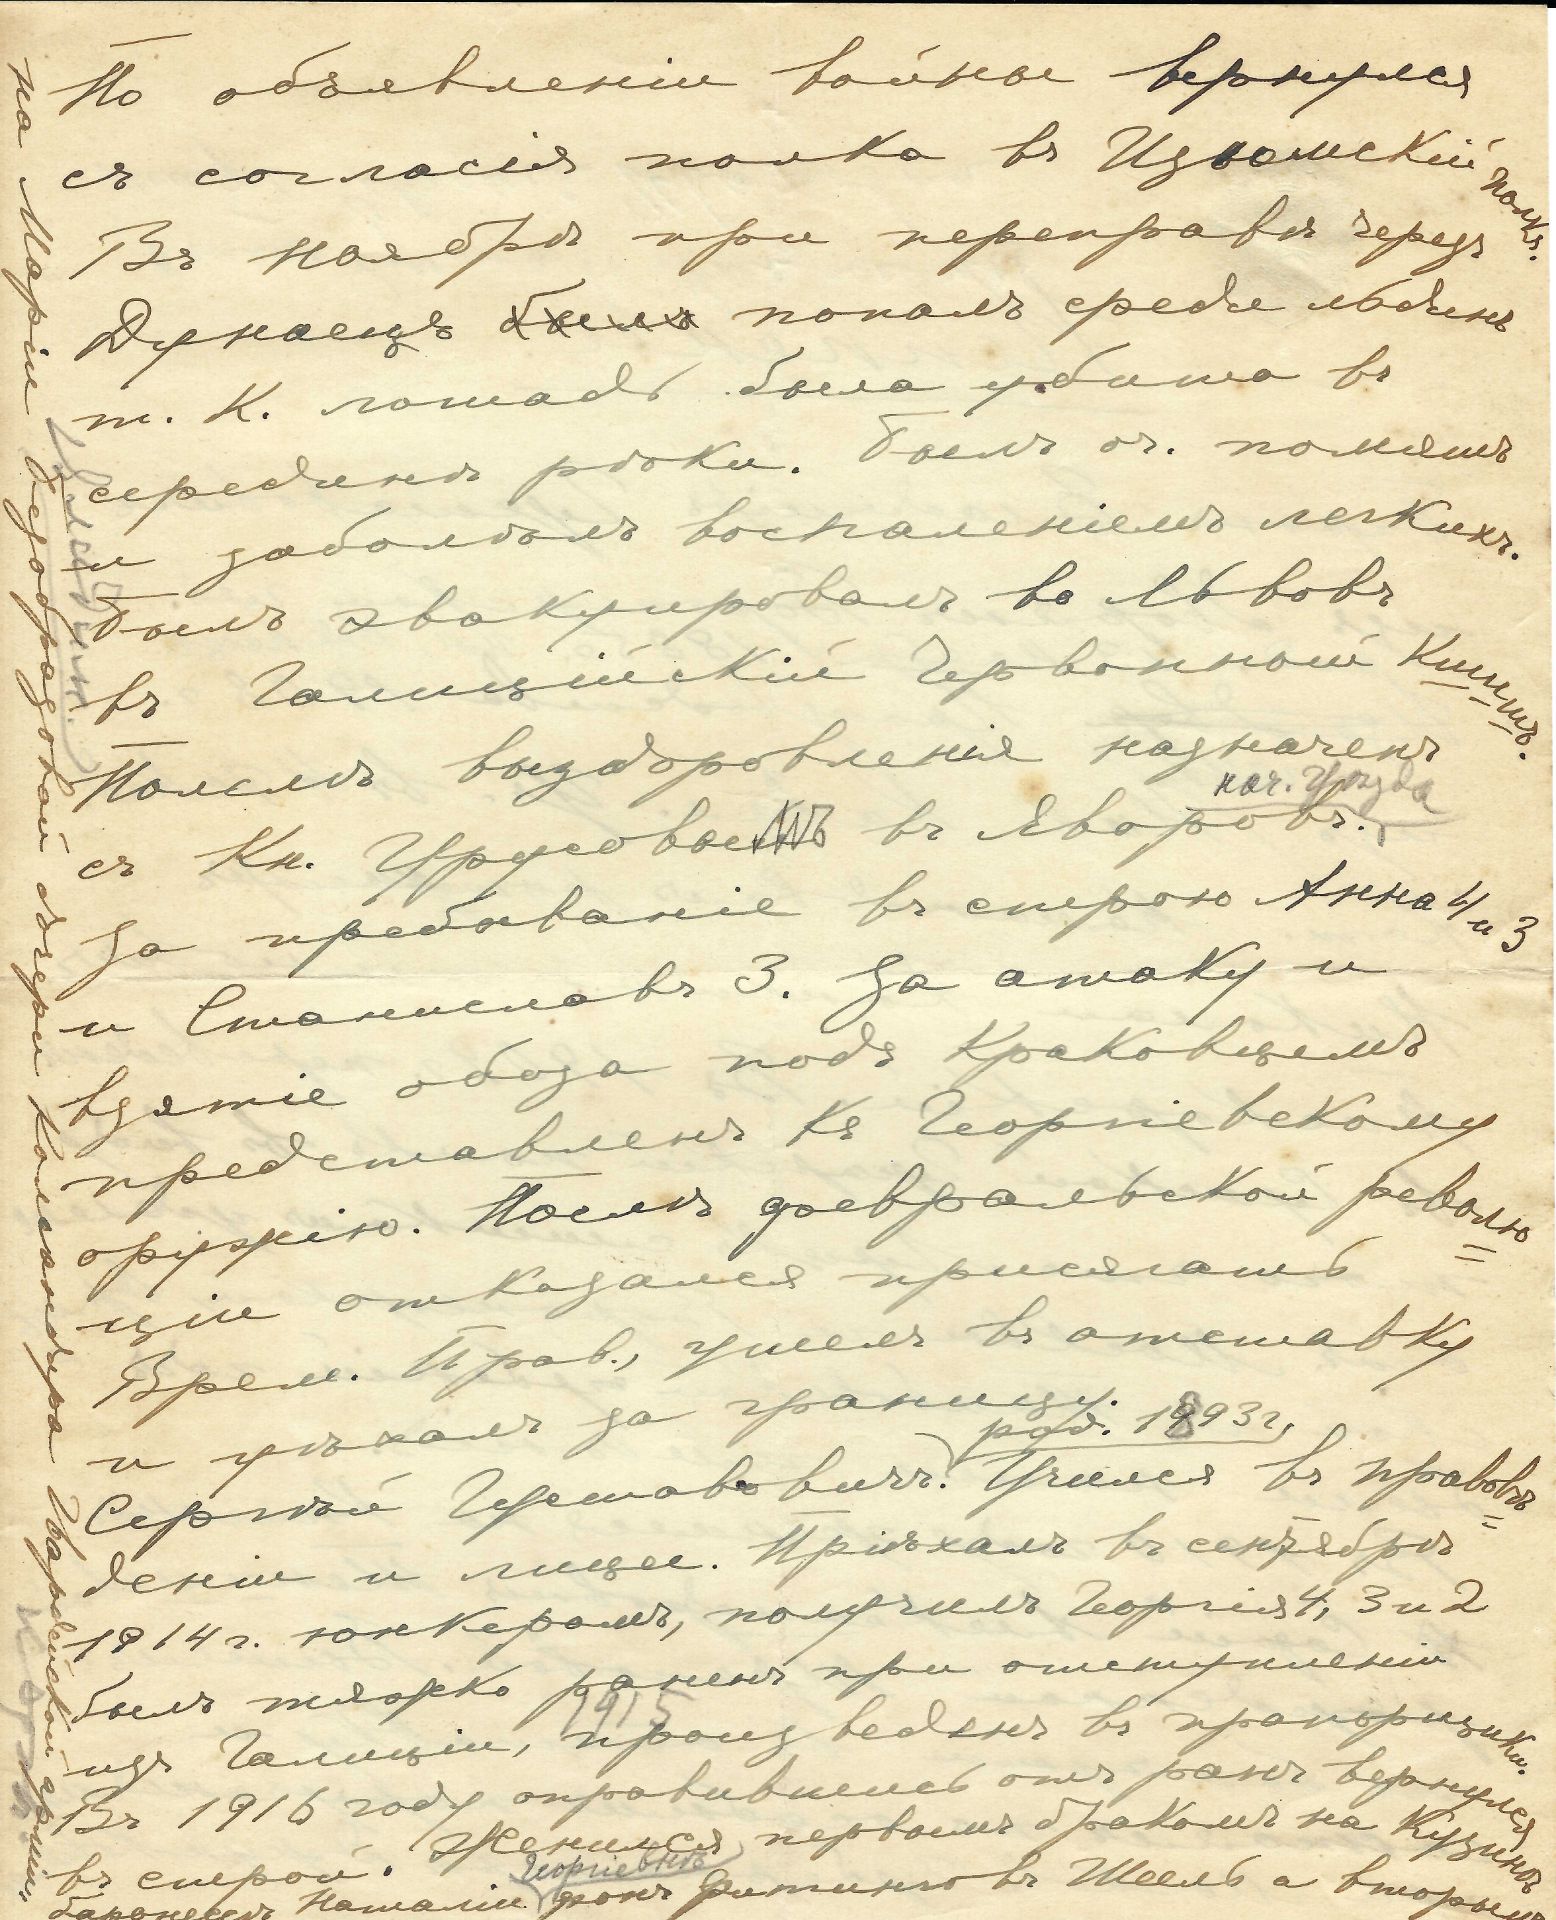 По объявленіи войны вернулся
съ согласія полка въ Изюмскій полкъ.
Въ ноябрѣ при переправѣ черезъ
Дунаецъ былъ попалъ среди льдинъ
т. к. лошадь была убита въ
серединѣ рѣки. Былъ оч. помятъ
и заболѣлъ воспаленіемъ легкихъ.
Былъ эвакуированъ во Львовъ
въ Галиційскій Червонный Кишитъ.
Послѣ выздоровленія назначенъ
нач. Уѣзда
съ Кн. Урусовымъ въ Яворовъ.
За пребываніе въ строю Анна 4 и 3
и Станиславъ 3. За атаку и
взятіе обоза подъ Краковцемъ
представленъ къ Георгіевскому
оружію. Послѣ февральской револю=
ціи отказался присягать
Врем. Прав., ушелъ въ отставку
и уѣхалъ за границу.
род. 1893 г.
Сергѣй Густавовичъ. Учился въ правовѣ=
деніи и лицеѣ. Пріѣхалъ въ сентябрѣ
1914 г. юнкеромъ, получилъ Георгія 4, 3 и 2
былъ тяжко раненъ при отступленіи
1915
изъ Галиціи, произведенъ въ прапорщики.
Въ 1916 году оправившись отъ ранъ вернулся
въ строй. Женился первымъ бракомъ на Кузинѣ
Георгіевнѣ
баронессѣ Наталіи фонъ Фитингофъ Шель а вторымъ
на Маріи Безобразовой дочери командира Гвардейской арміи.